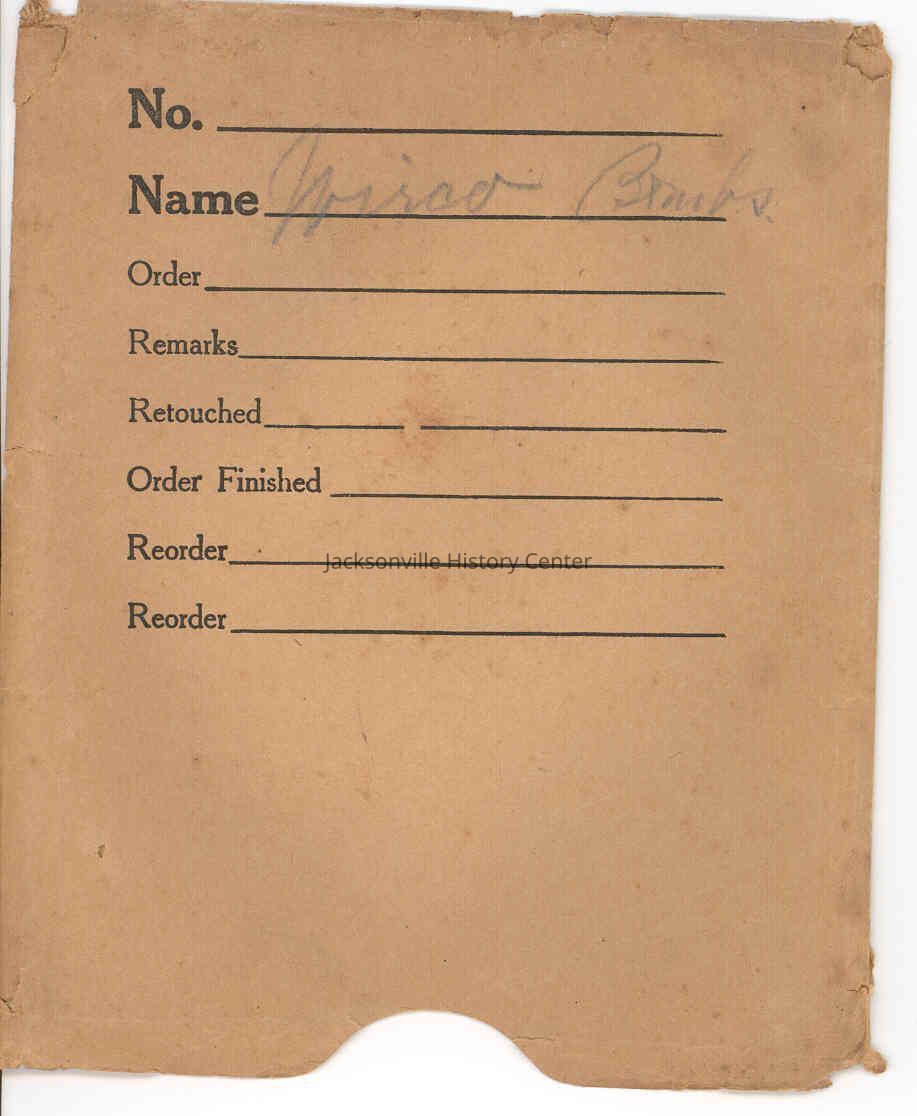 No.
Name Bombs.
Order
Remarks
Retouched
Order Finished
Reorder
Jacksonville History Center
Reorder